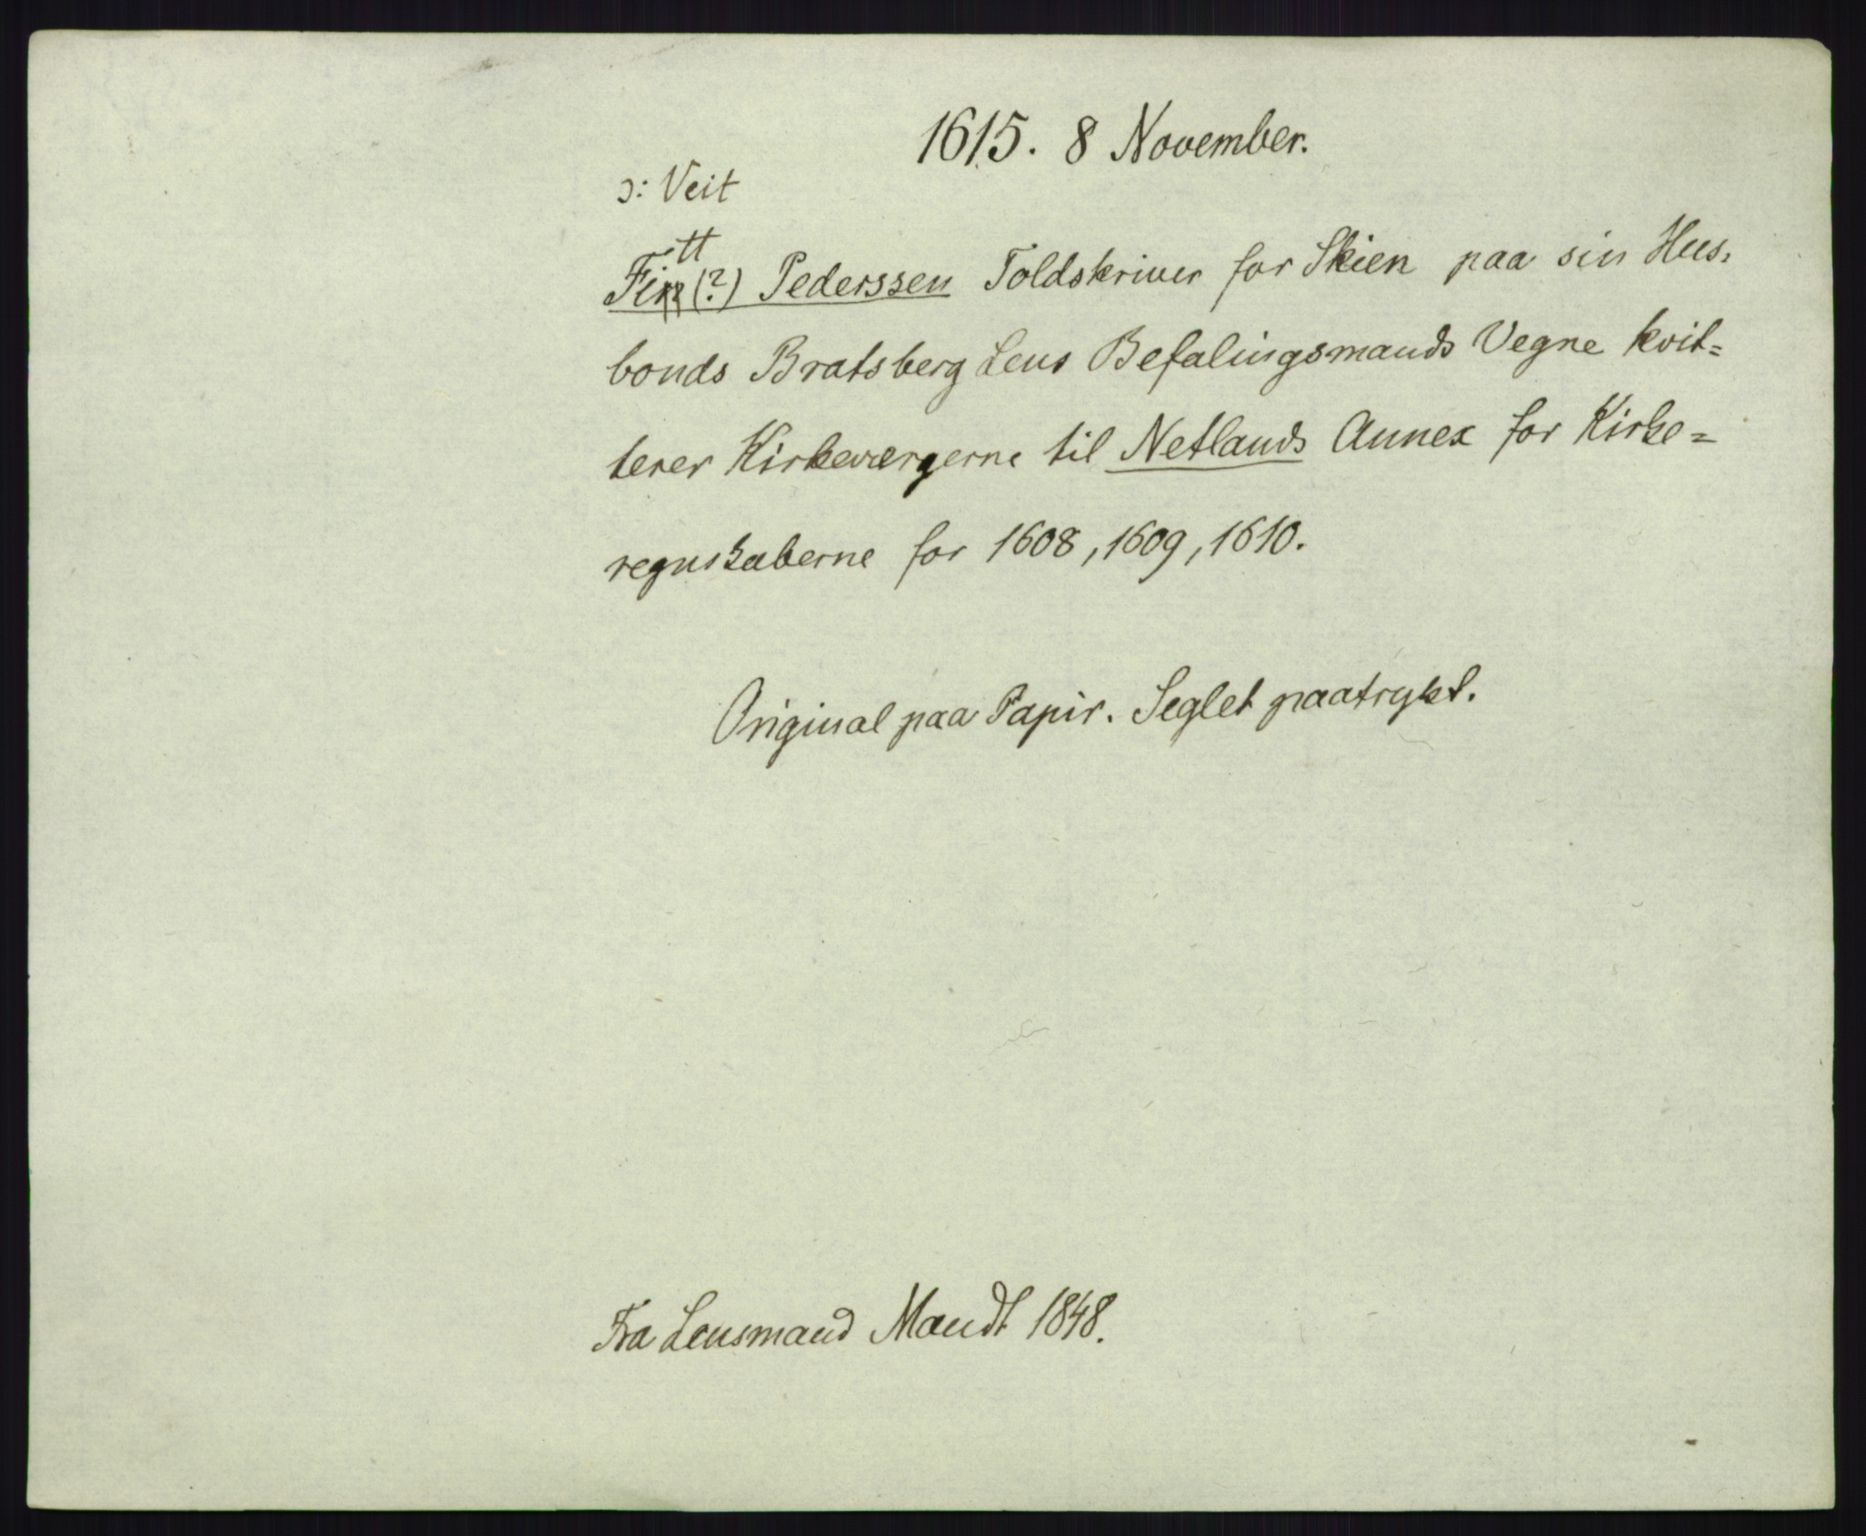 1615. 8 November.
ɔ: Veit
tt
Finn (?) Pederssen Toldskriver for Skien paa sin Hus-
bonds Bratsberg Lens Befalingsmands Vegne kvit=
terer Kirkeværgerne til Netlands Annex for Kirke=
regnskaberne for 1608, 1609, 1610.
Original paa Papir. Seglet paatrykt.
Fra Lensmand Mandt 1848.